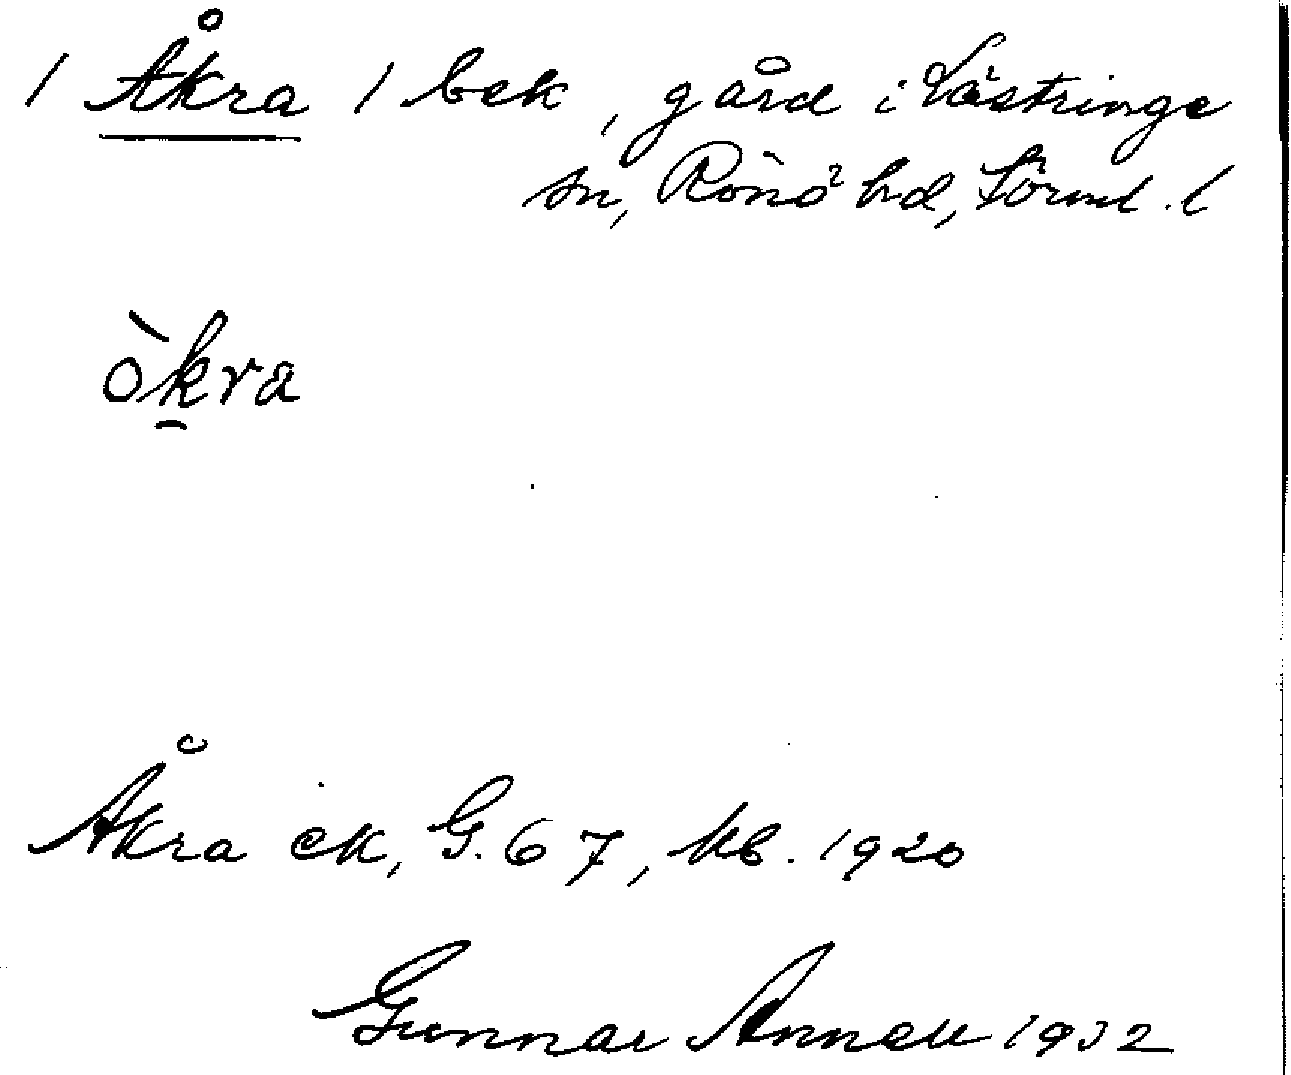 / Åkra / bek, gård i Lästringe
sn, Rönö hd, Sörml. l
òk̯ra
Åkra ek, G. 67, kb. 1920
Gunnar Annell 1932